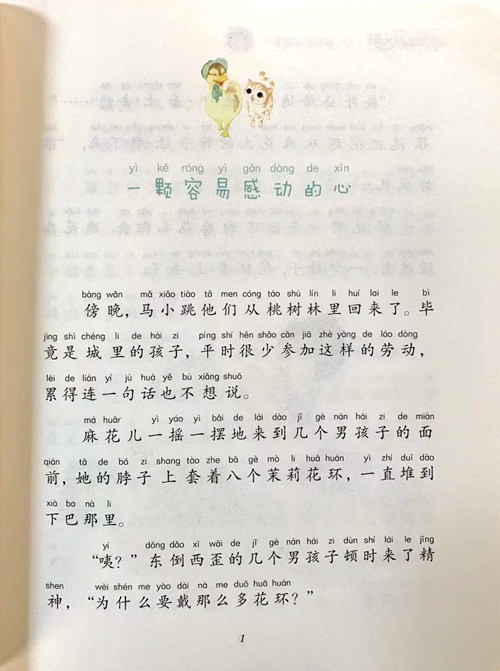 yì kē róng yì gǎn dòng de xīn
一颗容易感动的心
bàng wǎn mǎ xiǎo tiào tā men cóng táo shù lín li huí lai le bì
傍晚，马小跳他们从桃树林里回来了。毕
jìng shì chéng li de hái zi píng shí hěn shǎo cān jiā zhè yàng de láo dòng
竟是城里的孩子，平时很少参加这样的劳动，
lèi de lián yí jù huà yě bù xiǎng shuō
累得连一句话也不想说。
má huār yì yáo yì bǎi de lái dào jǐ gè nán hái zi de miàn
麻花儿一摇一摆地来到几个男孩子的面
qián tā de bó zi shang tào zhe bā gè mò li huā huán yì zhí duī dào
前，她的脖子上套着八个茉莉花环，一直堆到
xià ba nà li
下巴那里。
yí dōng dǎo xī wāi de jǐ gè nán hái zi dùn shí lái le jīng
“咦？”东倒西歪的几个男孩子顿时来了精
shen wèi shén me yào dài nà me duō huā huán
神，“为什么要戴那么多花环？”
1